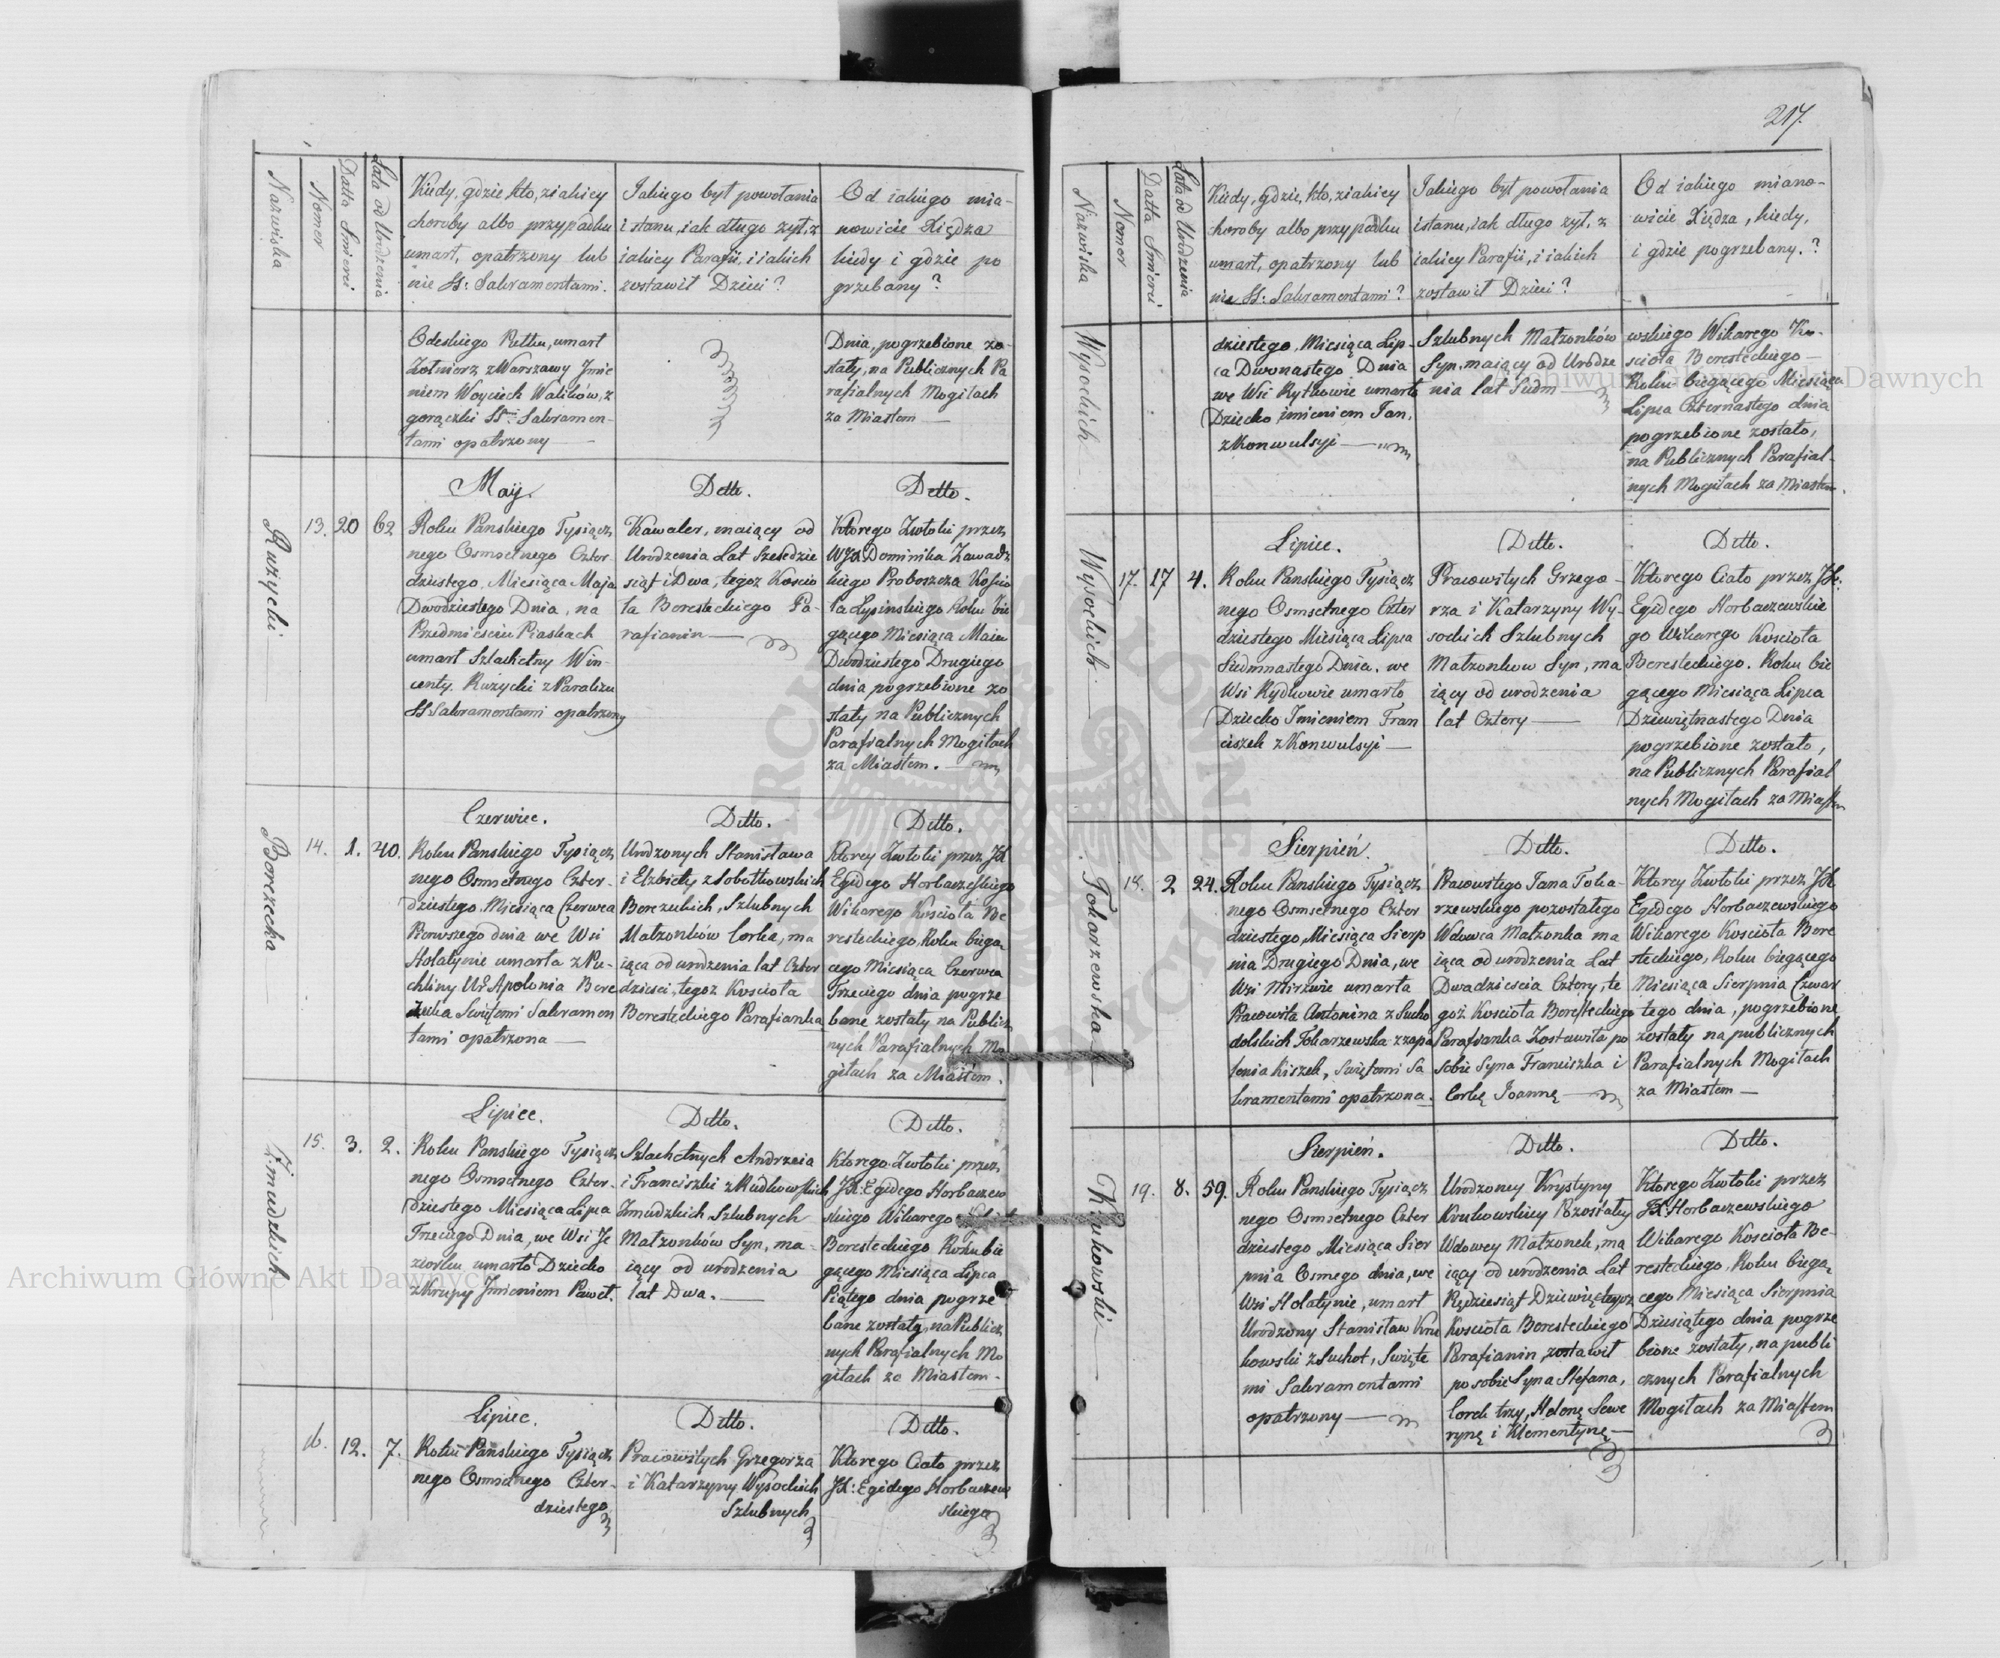 217.
Nazwiska
Nomer
Datta Smierci
Lata od Urodzenia
Kiedy, gdzie, kto, z iakiey
choroby albo przypadku
umarł, opatrzony lub
nie SS: Sakramentami.
Jakiego był powołania
i stanu, iak długo żył, z
iakiey Parafii, i iakich
zostawił Dzieci?
Od iakiego mia-
nowicie Xiędza
kiedy i gdzie po
grzebany?
Odeskiego Pułku, umarł
Żołnierz z Warszawy Jmie
niem Woyciech Walików, z
gorączki SS. Sakramen-
tami opatrzony
Dnia, pogrzebione zo-
stały, na Publicznych Pa
rafialnych Mogiłach
za Miastem
Ruzycki
13.
20
62
May.
Roku Panskiego Tysiącz
nego Osmsetnego Czter-
dziestego, Miesiąca Maja
Dwodziestego Dnia, na
Przedmieściu Piaskach
umarł Szlachetny Win-
centy Ruzycki z Paraliżu
SS. Sakramentami opatrzony
Detto.
Kawaler, maiący od
Urodzenia Lat Sześćdzie
siąt i Dwa, tegoz Koscio
ła Beresteckiego Pa-
rafianin
Detto.
Ktorego Zwłoki przez
Dominika Zawadz
kiego Proboszcza Koscio
ła Łysinskiego Roku bie
gącego Miesiąca Maia
Dwodziestego Drugiego
dnia pogrzebione zo
stały na Publicznych
Parafialnych Mogiłach
za Miastem.
Borezecka
14.
1.
40.
Czerwiec.
Roku Panskiego Tysiącz
nego Osmsetnego Czter-
dziestego, Miesiąca Czerwca
Pierwszego dnia we Wsi
Hołatynie umarła z Pu-
chliny Ur. Apolonia Bore
zecka Swiętemi Sakramen
tami opatrzona
Detto.
Urodzonych Stanisława
i Elzbiety z Sobotkowskich
Borezeckich, Szlubnych
Małzonków Corka, ma
iąca od urodzenia lat Czter
dzieści, tegoz Koscioła
Beresteckiego Parafianka
Detto.
Ktorey Zwłoki przez JX
Egidego Horbaczeskiego
Wikarego Koscioła Be
resteckiego, Roku biegą
cego Miesiąca Czerwca
Trzeciego dnia pogrze
bane zostały na Publicz
nych Parafialnych Mo
giłach za Miastem.
Zmudzkich
15.
3.
2.
Lipiec.
Roku Panskiego Tysiącz
nego Osmsetnego Czter-
dziestego Miesiąca Lipca
Trzeciego Dnia, we Wsi Je
ziorku umarło Dziecko
z Krupy Jmieniem Paweł.
Detto.
Szlachetnych Andrzeia
i Franciszki z Rudkowskich
Zmudzkich Szlubnych
Małzonków Syn, ma-
iący od urodzenia
lat Dwa.
Detto.
Ktorego Zwłoki przez
JX: Egidego Horbaczew
skiego Wikarego
Beresteckiego Roku bie
gącego Miesiąca Lipca
Piątego dnia pogrze
bane zostały, na Publicz
nych Parafialnych Mo
giłach za Miastem.
16.
12.
7.
Lipiec.
Roku Panskiego Tysiącz
nego Osmsetnego Czter-
dziestego
Detto.
Pracowitych Grzegorza
i Katarzyny Wysockich
Szlubnych
Detto.
Ktorego Ciało przez
JX: Egidego Horbaczew
skiego
Nazwiska
Nomer
Datta Smierci
Lata od Urodzenia
Kiedy, gdzie, kto, z iakiey
choroby albo przypadku
umarł, opatrzony lub
nie SS: Sakramentami?
Jakiego był powołania
i stanu, iak długo żył, z
iakiey Parafii, i iakich
zostawił Dzieci?
Od iakiego miano-
wicie Xiędza, kiedy,
i gdzie pogrzebany.?
Wysockich
dziestego, Miesiąca Lip-
ca Dwonastego Dnia
we Wsi Rytkowie umarło
Dziecko imieniem Jan,
z Konwulsyi
Szlubnych Małzonków
Syn, maiący od Urodze
nia lat Siedm
wskiego Wikarego Ko-
scioła Beresteckiego
Roku biegącego Miesiąca
Lipca Czternastego dnia
pogrzebione zostało,
na Publicznych Parafial-
nych Mogiłach za Miastem.
Wysockich
17.
17
4.
Lipiec.
Roku Panskiego Tysiącz
nego Osmsetnego Czter
dziestego Miesiąca Lipca
Siedmnastego Dnia, we
Wsi Rydkowie umarło
Dziecko Jmieniem Fran
ciszek z Konwulsyi
Detto.
Pracowitych Grzego-
rza i Katarzyny Wy-
sockich Szlubnych
Małzonkow Syn, ma
iący od urodzenia
lat Cztery
Detto.
Ktorego Ciało przez JX:
Egidego Horbaczewskie
go Wikarego Koscioła
Beresteckiego. Roku bie
gącego Miesiąca Lipca
Dziewiętnastego Dnia
pogrzebione zostało,
na Publicznych Parafial
nych Mogiłach za Miastem
Tokarzewska
18.
2
24.
Sierpień.
Roku Panskiego Tysiącz
nego Osmsetnego Czter
dziestego, Miesiąca Sierp
nia Drugiego Dnia, we
Wsi Mirzwie umarła
Pracowita Antonina z Sucho
dolskich Tokarzewska z zapa
lenia kiszek, Swiętemi Sa
kramentami opatrzona.
Detto.
Pracowitego Jana Toka-
rzewskiego pozostałego
Wdowca Małzonka ma
iąca od urodzenia Lat
Dwadzieścia Cztery, te
goż Koscioła Beresteckiego
Parafianka Zostawiła po
sobie Syna Franciszka i
Corkę Joannę
Detto.
Ktorey Zwłoki przez JX
Egidego Horbaczewskiego
Wikarego Koscioła Bere
steckiego, Roku biegącego
Miesiąca Sierpnia Czwar
tego dnia, pogrzebione
zostały na publicznych
Parafialnych Mogiłach
za Miastem
Krukowski
19.
8.
59.
Sierpień.
Roku Panskiego Tysiącz
nego Osmsetnego Czter
dziestego Miesiąca Sier
pnia Osmego dnia, we
Wsi Hołatynie, umarł
Urodzony Stanisław Kru
kowski z Suchot, Swięte
mi Sakramentami
opatrzony
Detto.
Urodzoney Krystyny
Krukowskiey Pozostałey
Wdowey Małzonek, ma
iący od urodzenia Lat
Pięćdziesiąt Dziewięć, tegoz
Koscioła Beresteckiego
Parafianin, zostawił
po sobie Syna Stefana,
Corek trzy, Helenę Sewe
rynę i Klementynę
Detto.
Ktorego Zwłoki przez
JX. Horbaczewskiego
Wikarego Koscioła Be-
resteckiego, Roku biegą
cego Miesiąca Sierpnia
Dziesiątego dnia pogrze
bione zostały, na publi
cznych Parafialnych
Mogiłach za Miastem
Archiwum Główne Akt Dawnych
Archiwum Główne Akt Dawnych